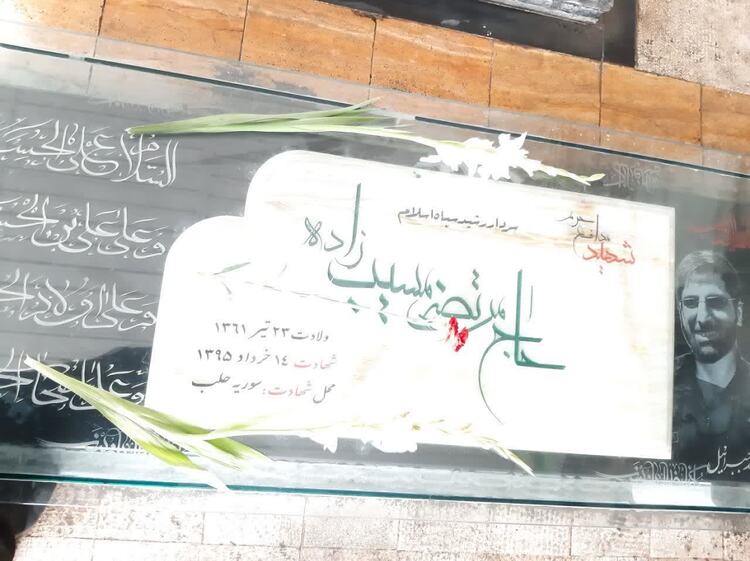 شهید
مدافع حرم
سردار رشید سپاه اسلام
حاج مرتضی مسیب زاده
ولادت ۲۳ تیر ۱۳۶۱
شهادت ۱۴ خرداد ۱۳۹۵
محل شهادت: سوریه حلب
السلام علی الحسین
وعلی علی بن الحسین
وعلی اولاد الحسین
وعلی اصحاب الحسین